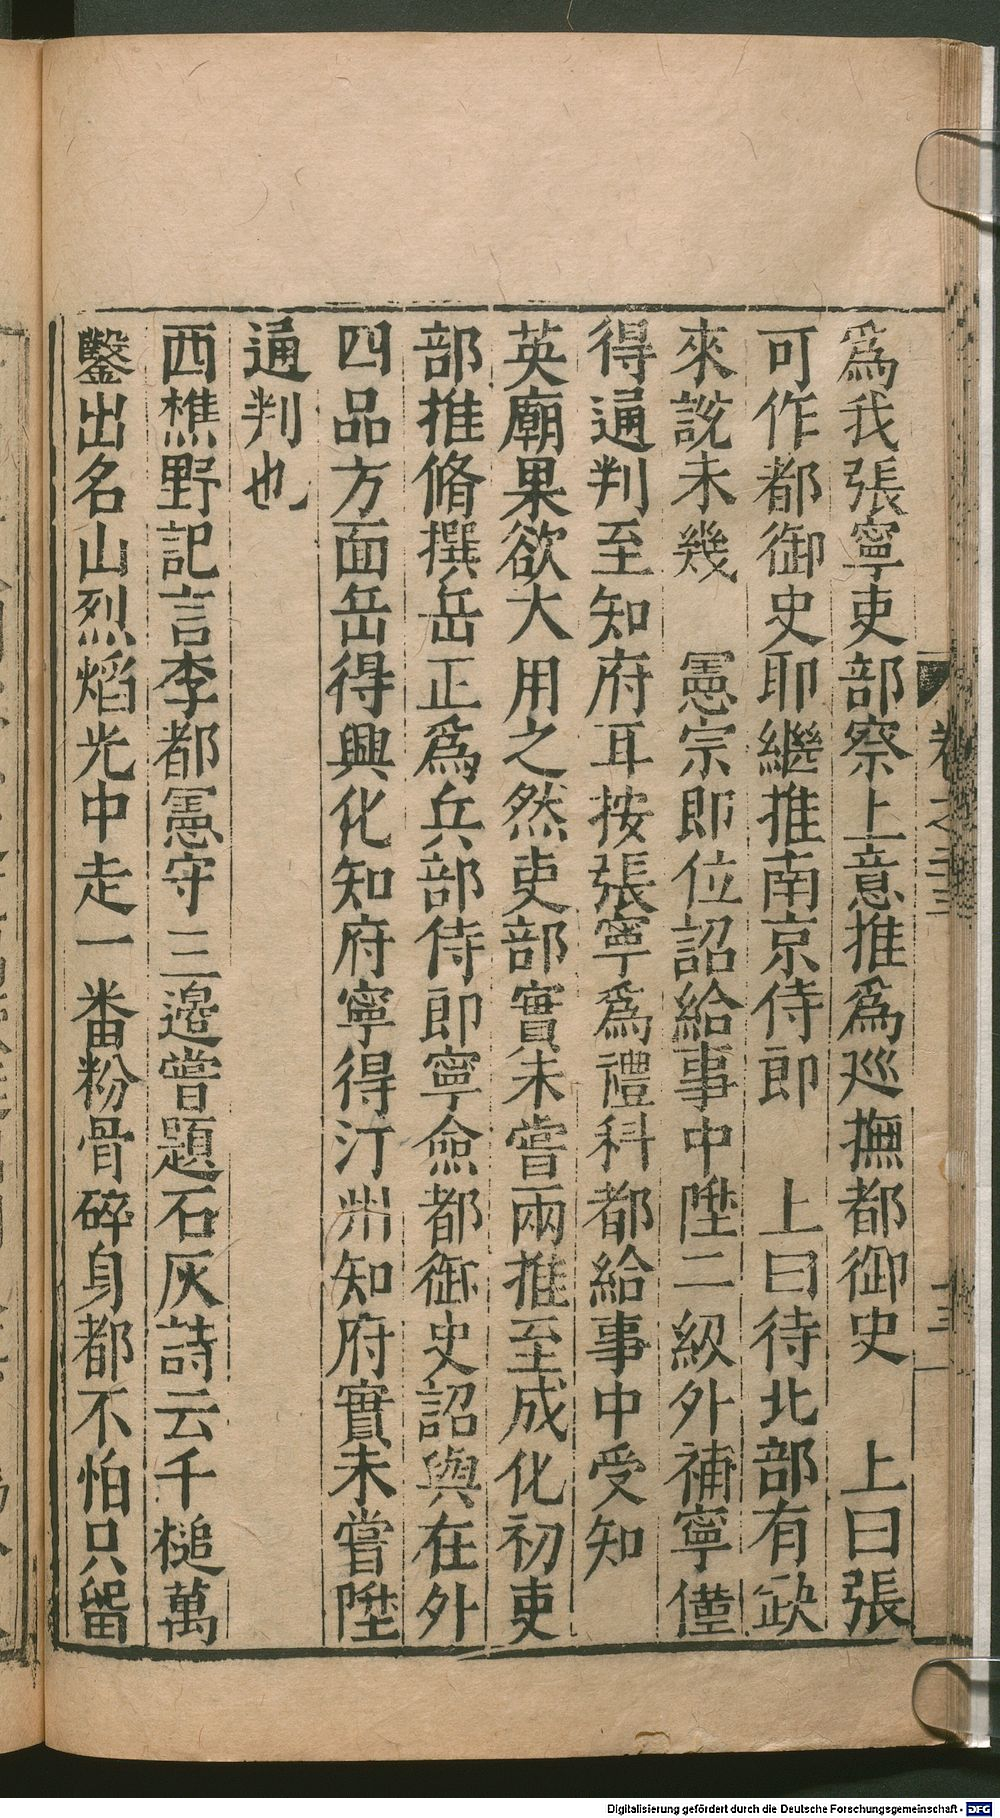 爲我張寧吏部察上意推爲廵撫都御史　上曰張
可作都御史耶繼推南京侍郎　上曰待北部有缺
來說未幾　憲宗即位詔給事中陞二級外補寧僅
得通判至知府耳按張寧爲禮科都給事中受知
英廟果欲大用之然吏部實未嘗兩推至成化初吏
部推脩撰岳正爲兵部侍郎寧僉都御史詔與在外
四品方面岳得興化知府寧得汀州知府實未嘗陞
通判也
西樵野記言李都憲守三邊嘗題石灰詩云千槌萬
鑿出名山烈焰光中走一番粉骨碎身都不怕只留
卷之三
十三
Digitalisierung gefördert durch die Deutsche Forschungsgemeinschaft - DFG